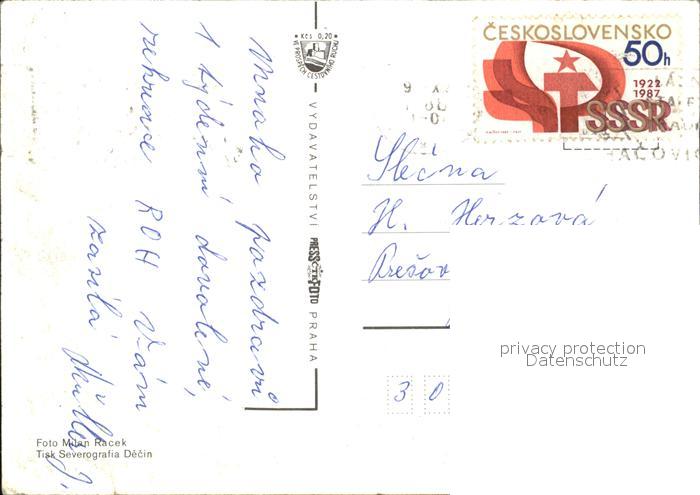 Mnoho pozdravů
1 týdenní dovolené,
rekreace ROH Vám
zasílá
Kčs 0,20
VE PROSPĚCH CESTOVNÍHO RUCHU
VYDAVATELSTVÍ PRESSFOTO PRAHA
Foto Milan Racek
Tisk Severografia Děčín
ČESKOSLOVENSKO
50h
1922
1987
SSSR
Slečna
H. Herzová
Prešov
30
privacy protection
Datenschutz